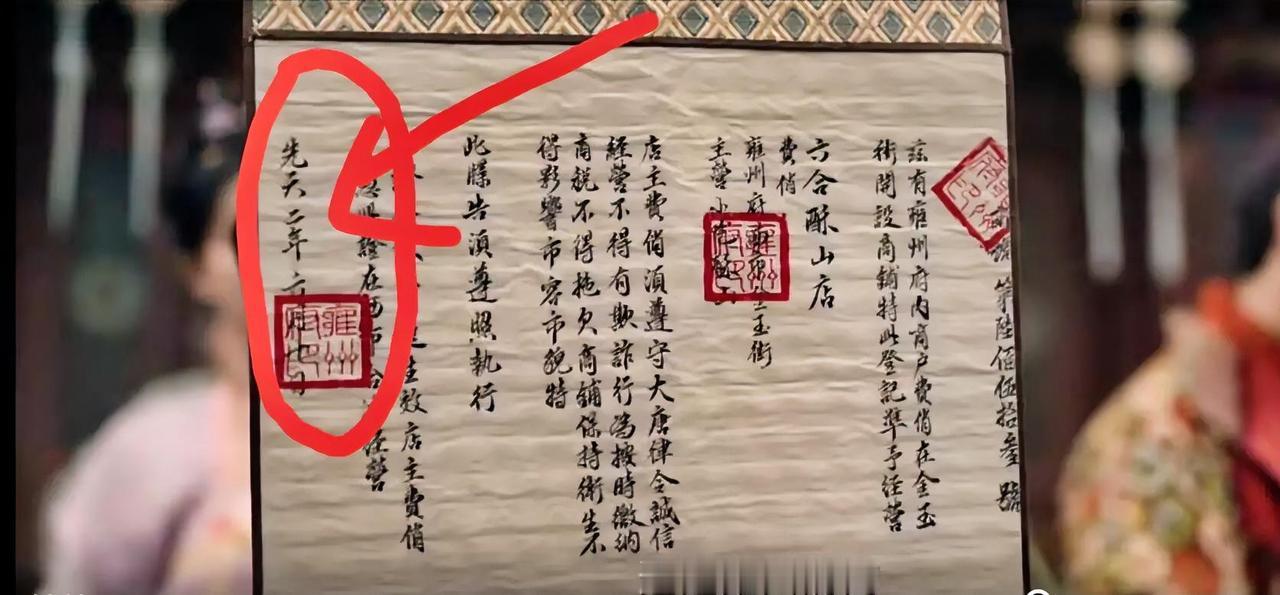 第陸佰伍拾叁號
茲有雍州府內商戶費俏在金玉
街開設商鋪特此登記準予經營
六合酥山店
費俏
雍州府玉街
主營
店主費俏須遵守大唐律令誠信
經營不得有欺詐行為按時繳納
商稅不得拖欠商鋪保持衛生不
得影響市容市貌特
此牒告須遵照執行
生效店主費俏
證在西市經營
先天二年六
雍州